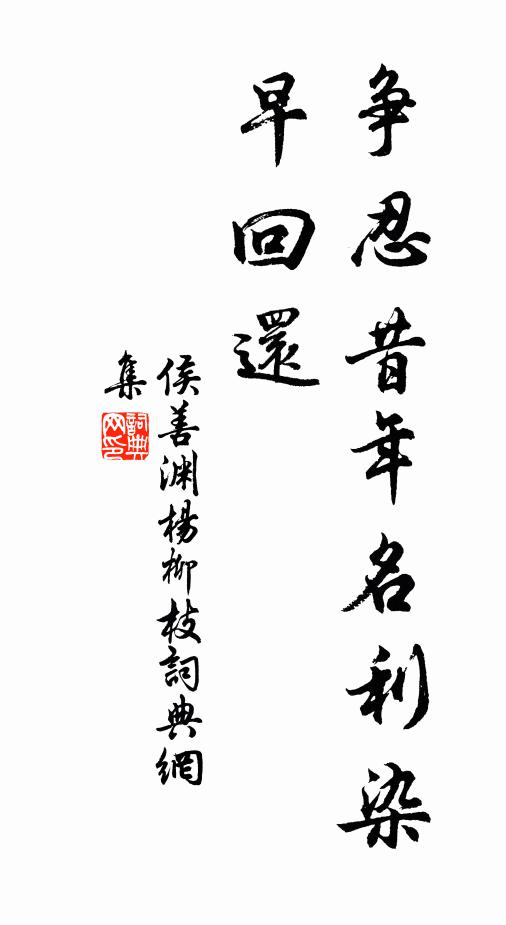 争忍昔年名利染
早回還
侯善渊楊柳枝詞典網
集
詞典
网印